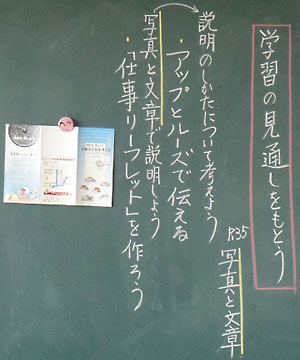 学習の見通しをもとう
P.35 写真と文章
説明のしかたについて考えよう
・アップとルーズで伝える
写真と文章で説明しよう
・「仕事リーフレット」を作ろう